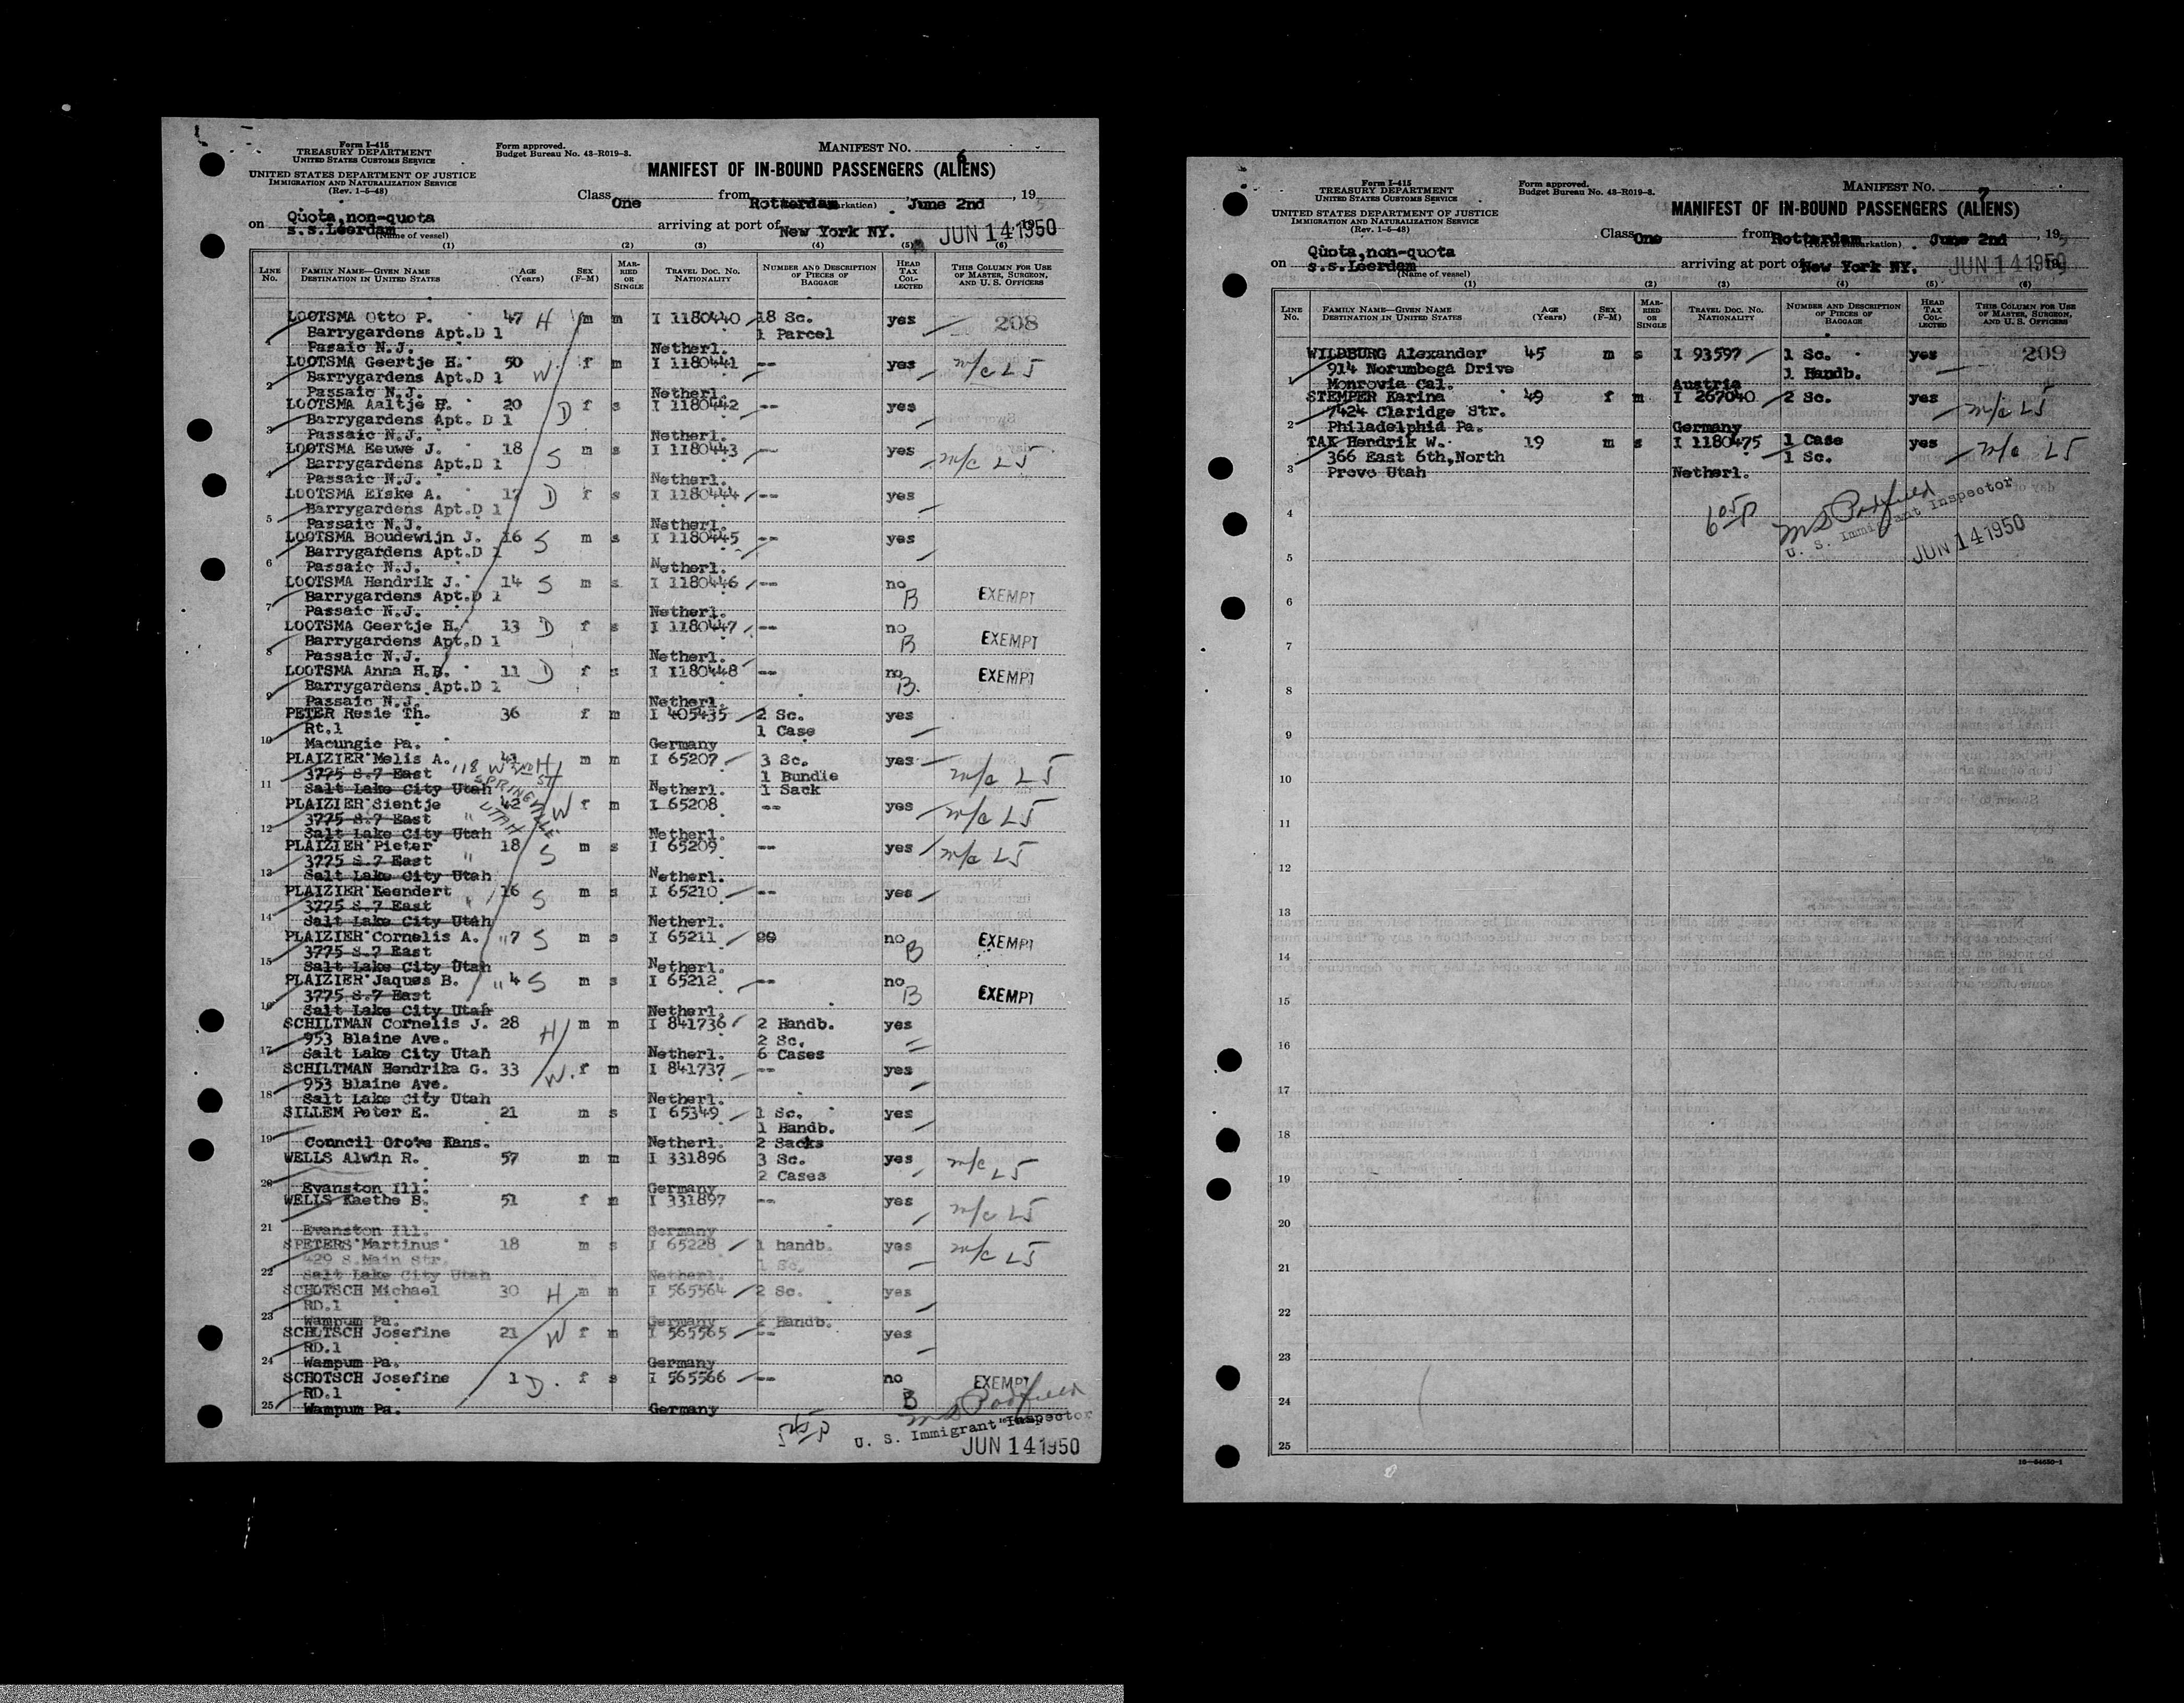 Form I-415
TREASURY DEPARTMENT
UNITED STATES CUSTOMS SERVICE
UNITED STATES DEPARTMENT OF JUSTICE
IMMIGRATION AND NATURALIZATION SERVICE
(Rev. 1-5-48)
Form approved.
Budget Bureau No. 43-R019-3.
MANIFEST No. 6
MANIFEST OF IN-BOUND PASSENGERS (ALIENS)
Class One from Rotterdam June 2nd, 195
Quota,non-quota
on s.s.Leerdam (Name of vessel) arriving at port of New York NY. JUN 14 1950
(1) (2) (3) (4) (5) (6)
LINE No. FAMILY NAME—GIVEN NAME DESTINATION IN UNITED STATES AGE (Years) SEX (F-M) MARRIED OR SINGLE TRAVEL DOC. NO. NATIONALITY NUMBER AND DESCRIPTION OF PIECES OF BAGGAGE HEAD TAX COLLECTED THIS COLUMN FOR USE OF MASTER, SURGEON, AND U. S. OFFICERS
LOOTSMA Otto P. 47 H m m I 1180440 18 Sc. yes 208
Barrygardens Apt.D 1 1 Parcel
Pasaic N.J. Netherl.
LOOTSMA Geertje H. 50 W f m I 1180441 -- yes m/c L5
2 Barrygardens Apt.D 1
Passaic N.J. Netherl.
LOOTSMA Aaltje H. 20 D f s I 1180442 -- yes
3 Barrygardens Apt. D 1
Passaic N.J. Netherl.
LOOTSMA Eeuwe J. 18 S m s I 1180443 -- yes m/c L5
4 Barrygardens Apt.D 1
Passaic N.J. Netherl.
LOOTSMA Elske A. 17 D f s I 1180444 -- yes
5 Barrygardens Apt.D 1
Passaic N.J. Netherl.
LOOTSMA Boudewijn J. 16 S m s I 1180445 -- yes
6 Barrygardens Apt.D 1
Passaic N.J. Netherl.
LOOTSMA Hendrik J. 14 S m s I 1180446 -- no B EXEMPT
7 Barrygardens Apt.D 1
Passaic N.J. Netherl.
LOOTSMA Geertje H. 13 D f s I 1180447 -- no B EXEMPT
8 Barrygardens Apt.D 1
Passaic N.J. Netherl.
LOOTSMA Anna H.B. 11 D f s I 1180448 -- no B. EXEMPT
9 Barrygardens Apt.D 1
Passaic N.J. Netherl.
PETER Resie Th. 36 f m I 405435 2 Sc. yes
10 Rt.1 1 Case
Macungie Pa. Germany
PLAIZIER Melis A. 41 H m m I 65207 3 Sc. yes m/c L5
11 3775 S.7 East 118 W 2ND ST SPRINGVILLE UTAH 1 Bundle
Salt Lake City Utah Netherl. 1 Sack
PLAIZIER Sientje 42 W f m I 65208 -- yes m/c L5
12 3775 S.7 East "
Salt Lake City Utah Netherl.
PLAIZIER Pieter 18 S m s I 65209 yes m/c L5
13 3775 S.7 East "
Salt Lake City Utah Netherl.
PLAIZIER Leendert 16 S m s I 65210 -- yes
14 3775 S.7 East "
Salt Lake City Utah Netherl.
PLAIZIER Cornelis A. " 7 S m s I 65211 no B EXEMPT
15 3775 S.7 East
Salt Lake City Utah Netherl.
PLAIZIER Jaques B. " 4 S m s I 65212 -- no B EXEMPT
16 3775 S.7 East
Salt Lake City Utah Netherl.
SCHILTMAN Cornelis J. 28 H m m I 841736 2 Handb. yes
17 953 Blaine Ave. 2 Sc.
Salt Lake City Utah Netherl. 6 Cases
SCHILTMAN Hendrika G. 33 W. f m I 841737 -- yes
18 953 Blaine Ave.
Salt Lake City Utah Netherl.
SILLEM Peter E. 21 m s I 65349 1 Sc. yes
19 1 Handb.
Council Grove Kans. Netherl. 2 Sacks
WELLS Alwin R. 57 m m I 331896 3 Sc. yes m/c L5
20 2 Cases
Evanston Ill. Germany
WELLS Kaethe B. 51 f m I 331897 -- yes m/c L5
21 Evanston Ill. Germany
SPETERS Martinus 18 m s I 65228 1 handb. yes m/c L5
22 429 S.Main Str. 1 Sc.
Salt Lake City Utah Netherl.
SCHOTSCH Michael 30 H m m I 565564 2 Sc. yes
23 RD.1
Wampum Pa. Germany 2 Handb.
SCHOTSCH Josefine 21 W f m I 565565 -- yes
24 RD.1
Wampum Pa. Germany
SCHOTSCH Josefine 1 D. f s I 565566 -- no B EXEMPT
25 RD.1
Wampum Pa. Germany
U. S. Immigrant Inspector
JUN 14 1950
Form I-415
TREASURY DEPARTMENT
UNITED STATES CUSTOMS SERVICE
UNITED STATES DEPARTMENT OF JUSTICE
IMMIGRATION AND NATURALIZATION SERVICE
(Rev. 1-5-48)
Form approved.
Budget Bureau No. 43-R019-3.
MANIFEST No. 7
MANIFEST OF IN-BOUND PASSENGERS (ALIENS)
Class One from Rotterdam June 2nd, 195
Quota,non-quota
on s.s.Leerdam (Name of vessel) arriving at port of New York NY. JUN 14 1950
(1) (2) (3) (4) (5) (6)
LINE No. FAMILY NAME—GIVEN NAME DESTINATION IN UNITED STATES AGE (Years) SEX (F-M) MARRIED OR SINGLE TRAVEL DOC. NO. NATIONALITY NUMBER AND DESCRIPTION OF PIECES OF BAGGAGE HEAD TAX COLLECTED THIS COLUMN FOR USE OF MASTER, SURGEON, AND U. S. OFFICERS
WILDBURG Alexander 45 m s I 93597 1 Sc. yes 209
1 914 Norumbega Drive 1 Handb.
Monrovia Cal. Austria
STEMPER Karina 49 f m I 267040 2 Sc. yes m/c L5
2 7424 Claridge Str.
Philadelphia Pa. Germany
TAK Hendrik W. 19 m s I 1180475 1 Case yes m/c L5
3 366 East 6th,North 1 Sc.
Provo Utah Netherl.
4 605P
U. S. Immigrant Inspector
JUN 14 1950
5
6
7
8
9
10
11
12
13
14
15
16
17
18
19
20
21
22
23
24
25